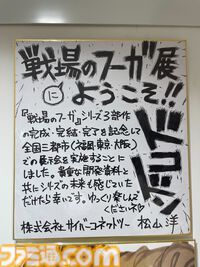 戦場のフーガ展
に ようこそ!!
『戦場のフーガ』シリーズ3部作
の完成・完結・完了を記念して
全国三都市(福岡・東京・大阪)
での展示会を実施することに
しました。貴重な開発資料と
共にシリーズの未来も感じていた
だけたら幸いです。ゆっくり楽しんで
くださいネ♡
ドドドン
株式会社サイバーコネクトツー 松山洋
ファミ通.com